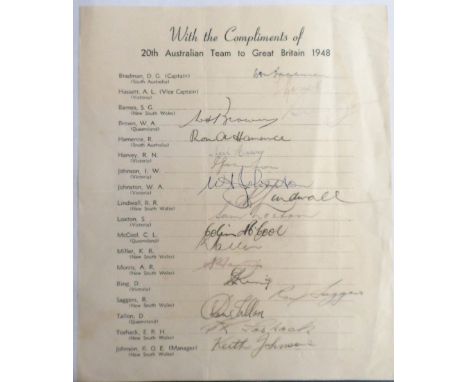 With the Compliments of
20th Australian Team to Great Britain 1948
Bradman, D. G. (Captain)
(South Australia)
Hassett, A. L. (Vice Captain)
(Victoria)
Barnes, S. G.
(New South Wales)
Brown, W. A.
(Queensland)
W A Brown
Hamence, R.
(South Australia)
Ron A Hamence
Harvey, R. N.
(Victoria)
Neil Harvey
Johnson, I. W.
(Victoria)
Johnston, W. A.
(Victoria)
W A Johnston
Lindwall, R. R.
(New South Wales)
Lindwall
Loxton, S.
(Victoria)
Sam Loxton
McCool, C. L.
(Queensland)
Colin McCool
Miller, K. R.
(New South Wales)
Morris, A. R.
(New South Wales)
Ring, D.
(Victoria)
D Ring
Saggers, R.
(New South Wales)
Ron Saggers
Tallon, D.
(Queensland)
Don Tallon
Toshack, E. R. H.
(New South Wales)
Toshack
Johnson, K. O. E. (Manager)
(New South Wales)
Keith Johnson